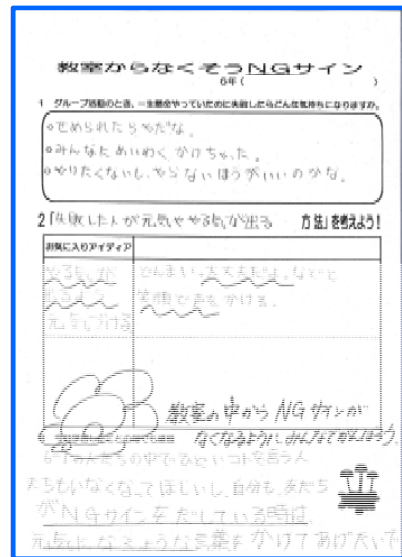 教室からなくそうNGサイン
6年( )
1 グループ活動のとき、一生懸命やっていたのに失敗したらどんな気持ちになりますか。
○せめられたらやだな。
○みんなにめいわくかけちゃった。
○やりたくないし、やらないほうがいいのかな。
2「失敗した人が元気ややる気が出る 方法」を考えよう!
お気に入りアイディア
やる気が どんまい、大丈夫だよ。などと
笑顔で声をかける。
元気づける
教室の中からNGサインが
なくなるようにみんなでがんばろう。
6-1のみんなの中でひどいコトを言う人
たちもいなくなってほしいし、自分も、友だち
がNGサインをだしている時は、
元気になるような言葉をかけてあげたいで